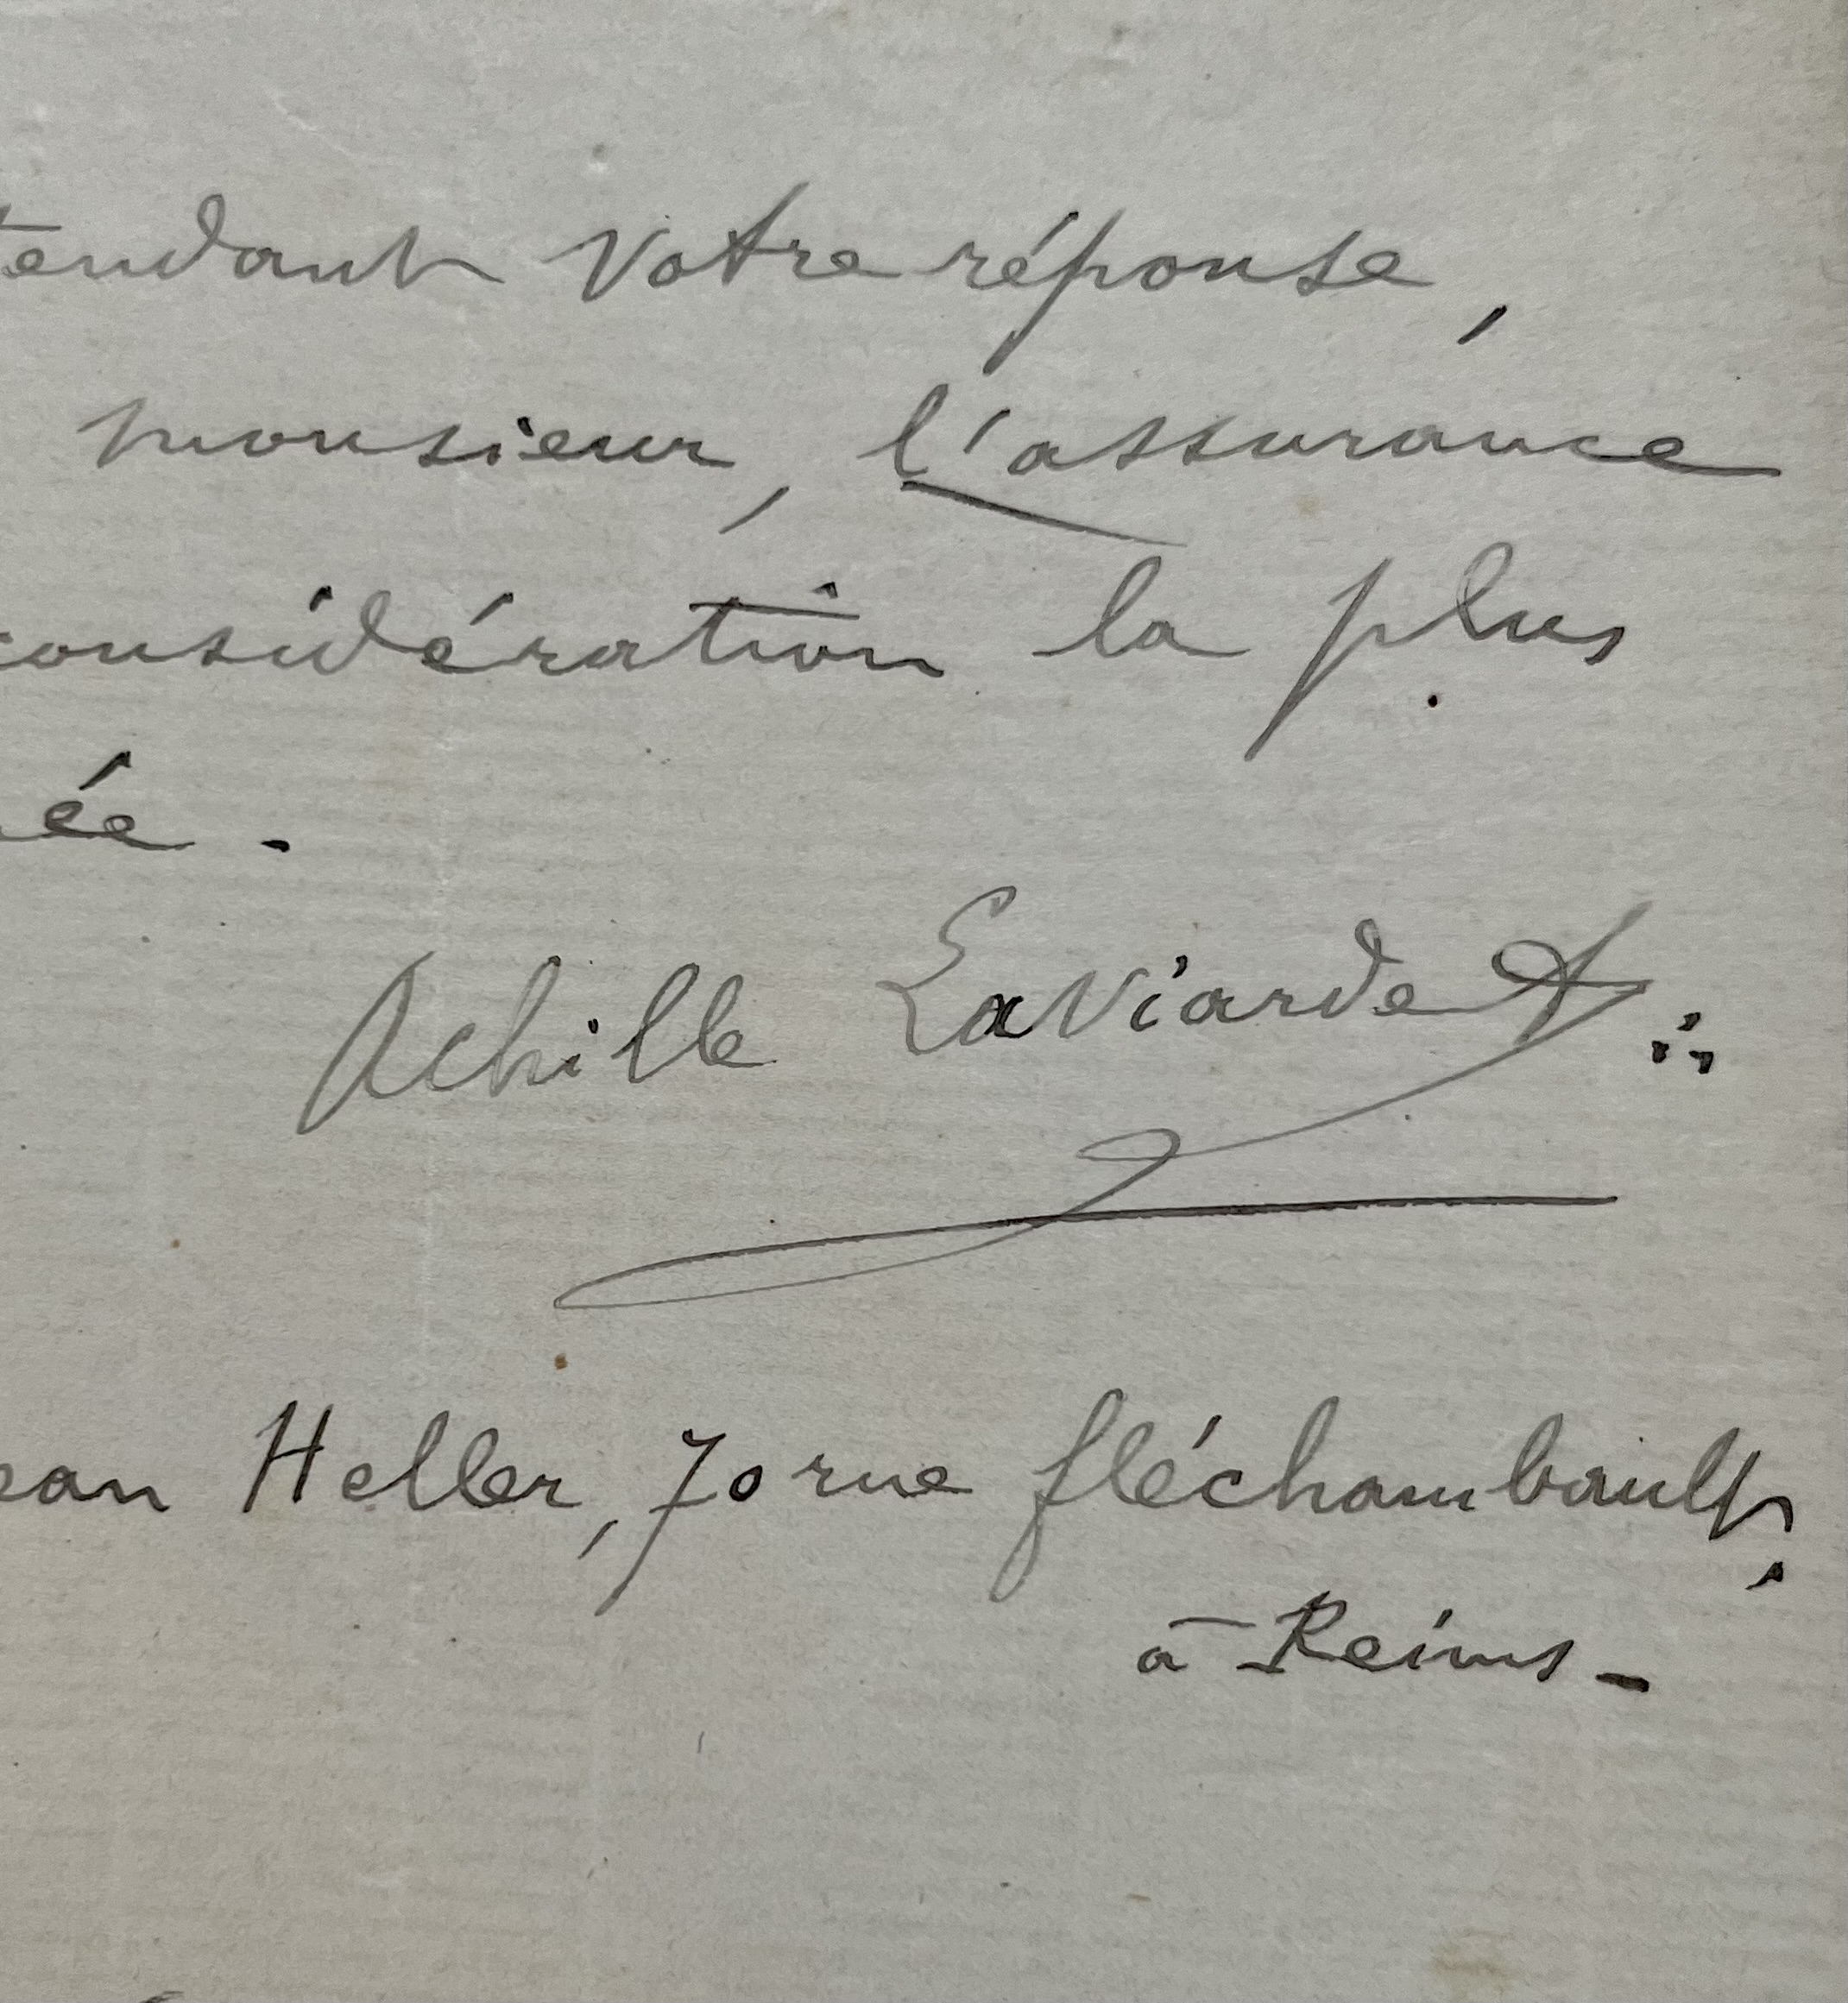 tendant votre réponse,
monsieur, l'assurance
considération la plus
ée.
Achille Laviarde ∴
ean Heller, 70 rue fléchambault,
à Reims -